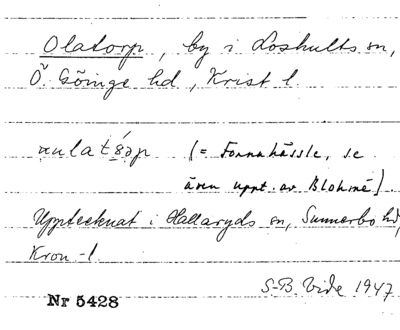 Olatorp, by i Loshults sn,
Ö. Göinge hd, Krist l.
(= Fornahässle, se
även uppt. av Blohmé)
Upptecknat i Hallaryds sn, Sunnerbo hd,
Kron-l.
S-B. Vide 1947
Nr 5428